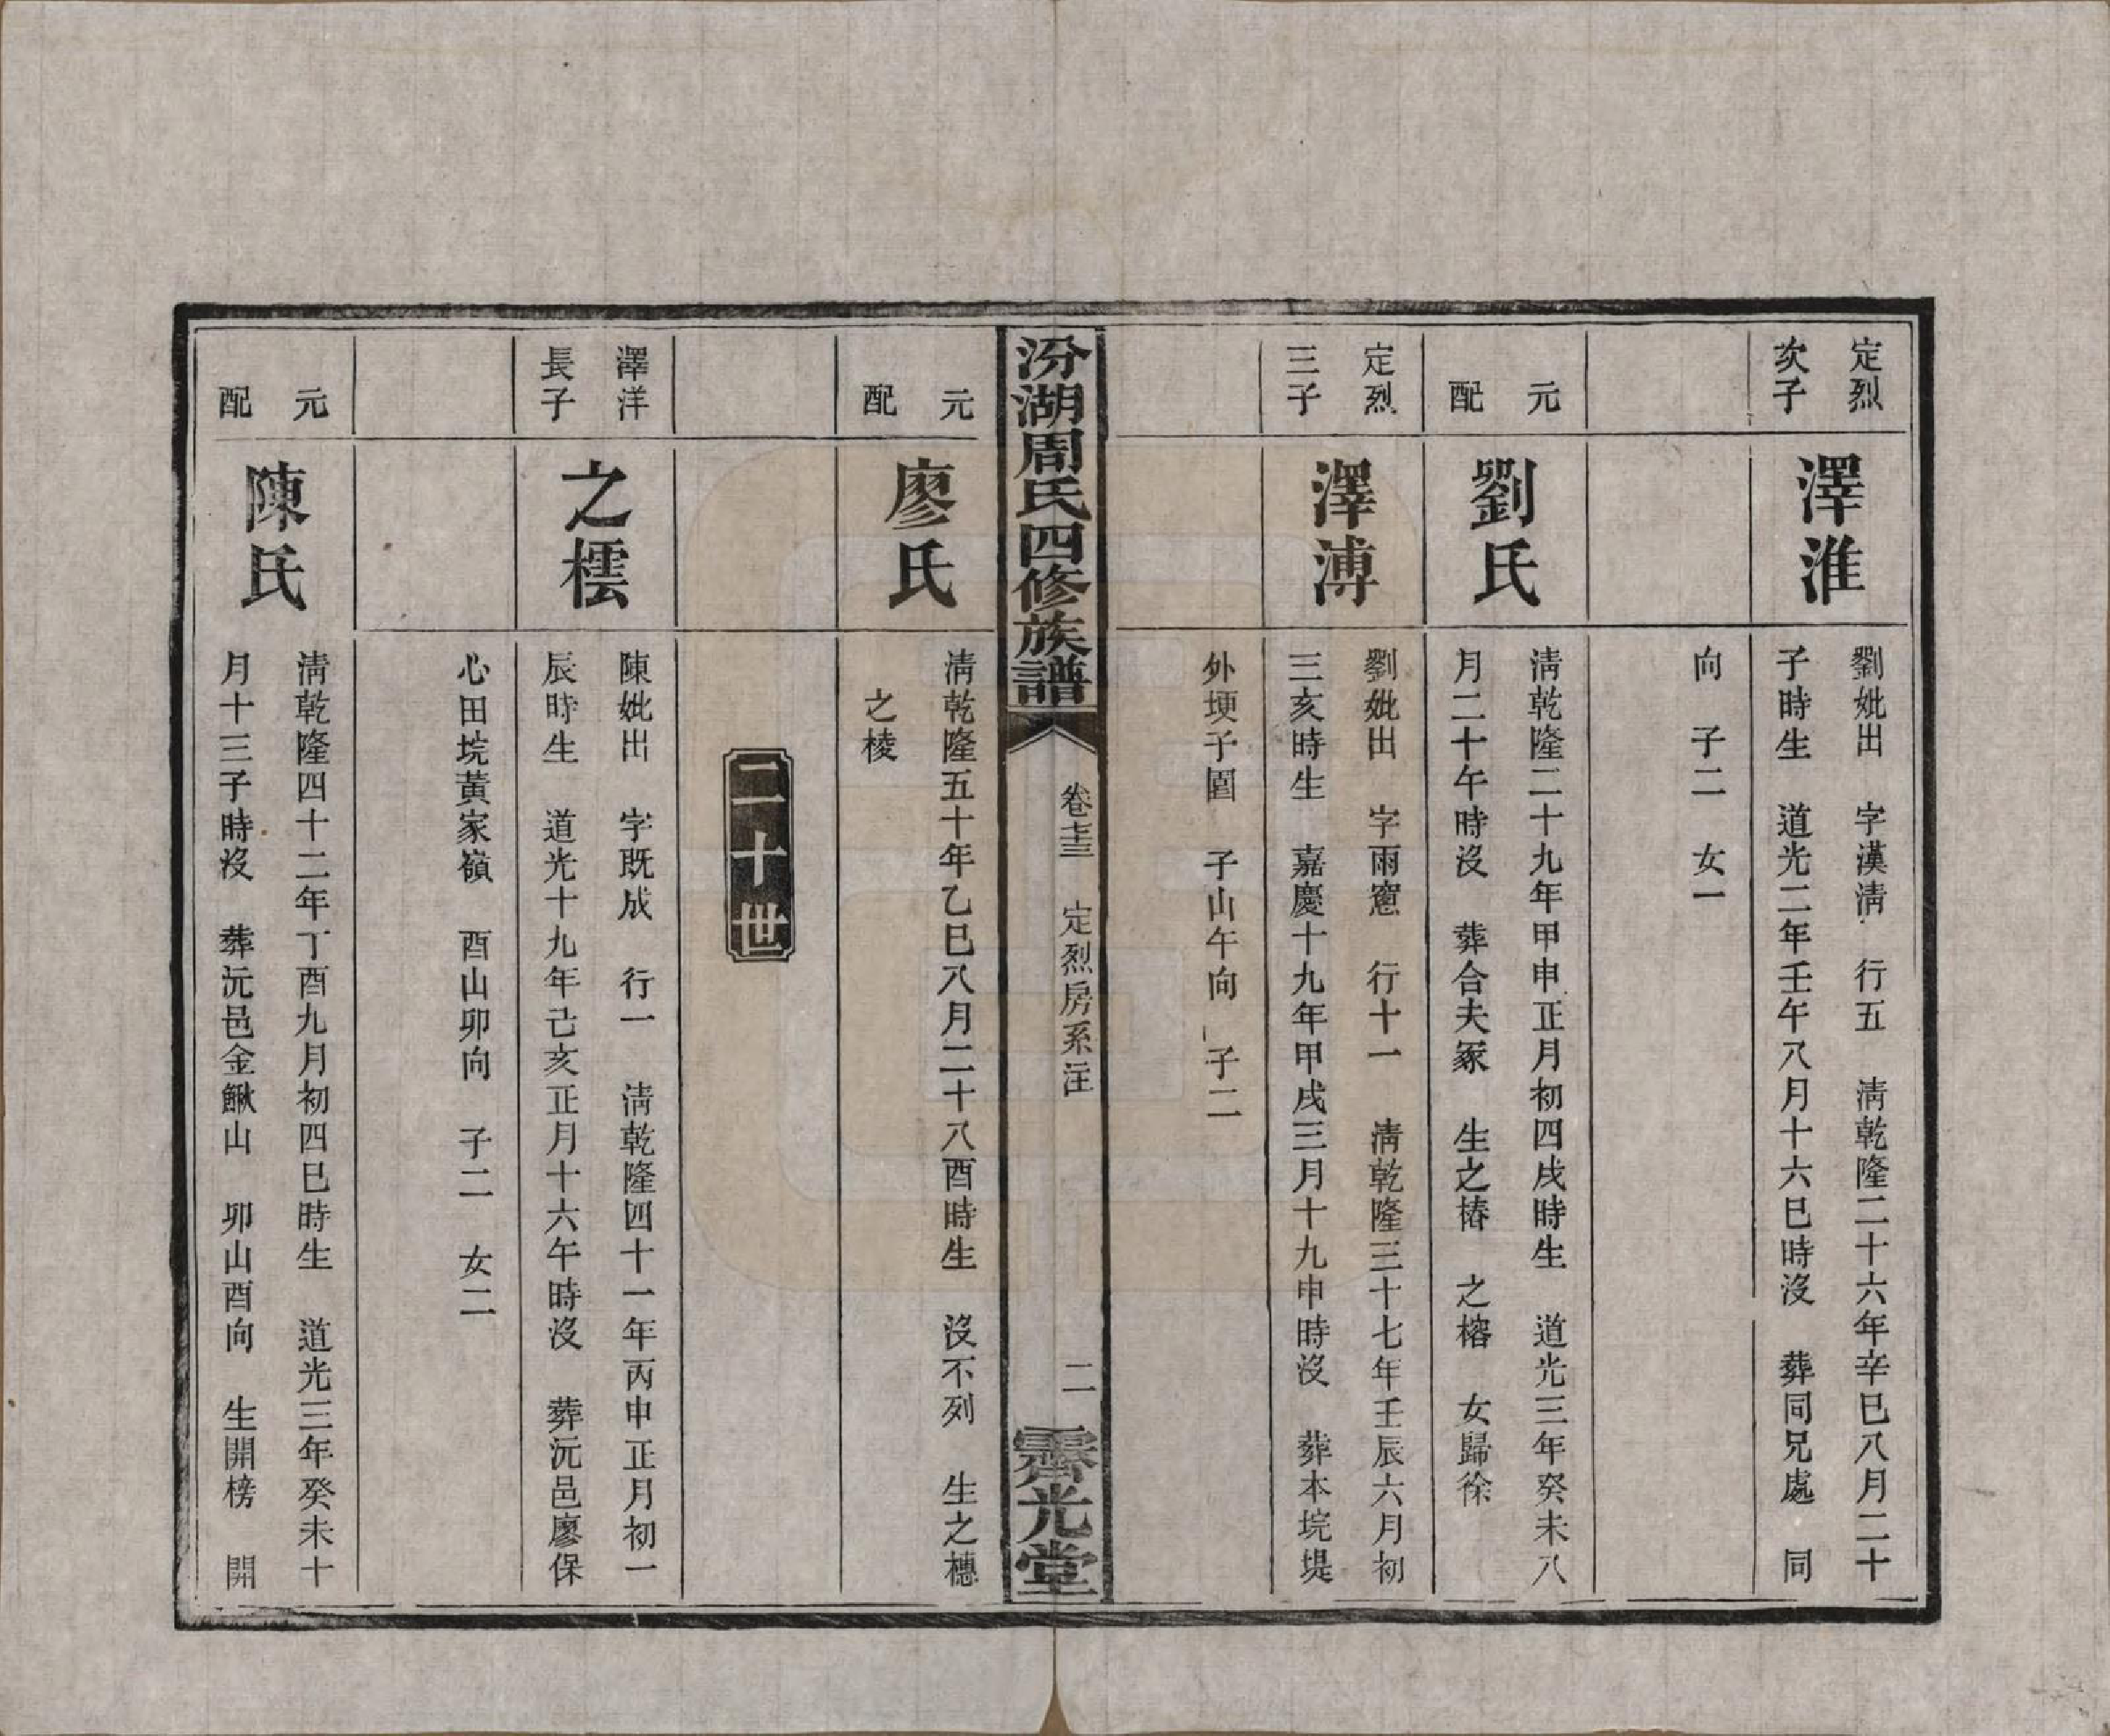 定烈
次子
澤淮
劉妣出　字漢清　行五　清乾隆二十六年辛巳八月二十
子時生　道光二年壬午八月十六巳時沒　葬同兄處　同
向　子二　女一
元
配
劉氏
清乾隆二十九年甲申正月初四戌時生　道光三年癸未八
月二十午時沒　葬合夫冢　生之椿　之榕　女歸徐
定烈
三子
澤溥
劉妣出　字雨窻　行十一　清乾隆三十七年壬辰六月初
三亥時生　嘉慶十九年甲戌三月十九申時沒　葬本垸堤
外埂子圍　子山午向　子二
汾湖周氏四修族譜
卷十三　定烈房系注
二
霽光堂
元
配
廖氏
清乾隆五十年乙巳八月二十八酉時生　沒不列　生之橞
之棱
二十世
澤洋
長子
之橒
陳妣出　字既成　行一　清乾隆四十一年丙申正月初一
辰時生　道光十九年己亥正月十六午時沒　葬沅邑廖保
心田垸黃家嶺　酉山卯向　子二　女二
元
配
陳氏
清乾隆四十二年丁酉九月初四巳時生　道光三年癸未十
月十三子時沒　葬沅邑金鰍山　卯山酉向　生開榜　開